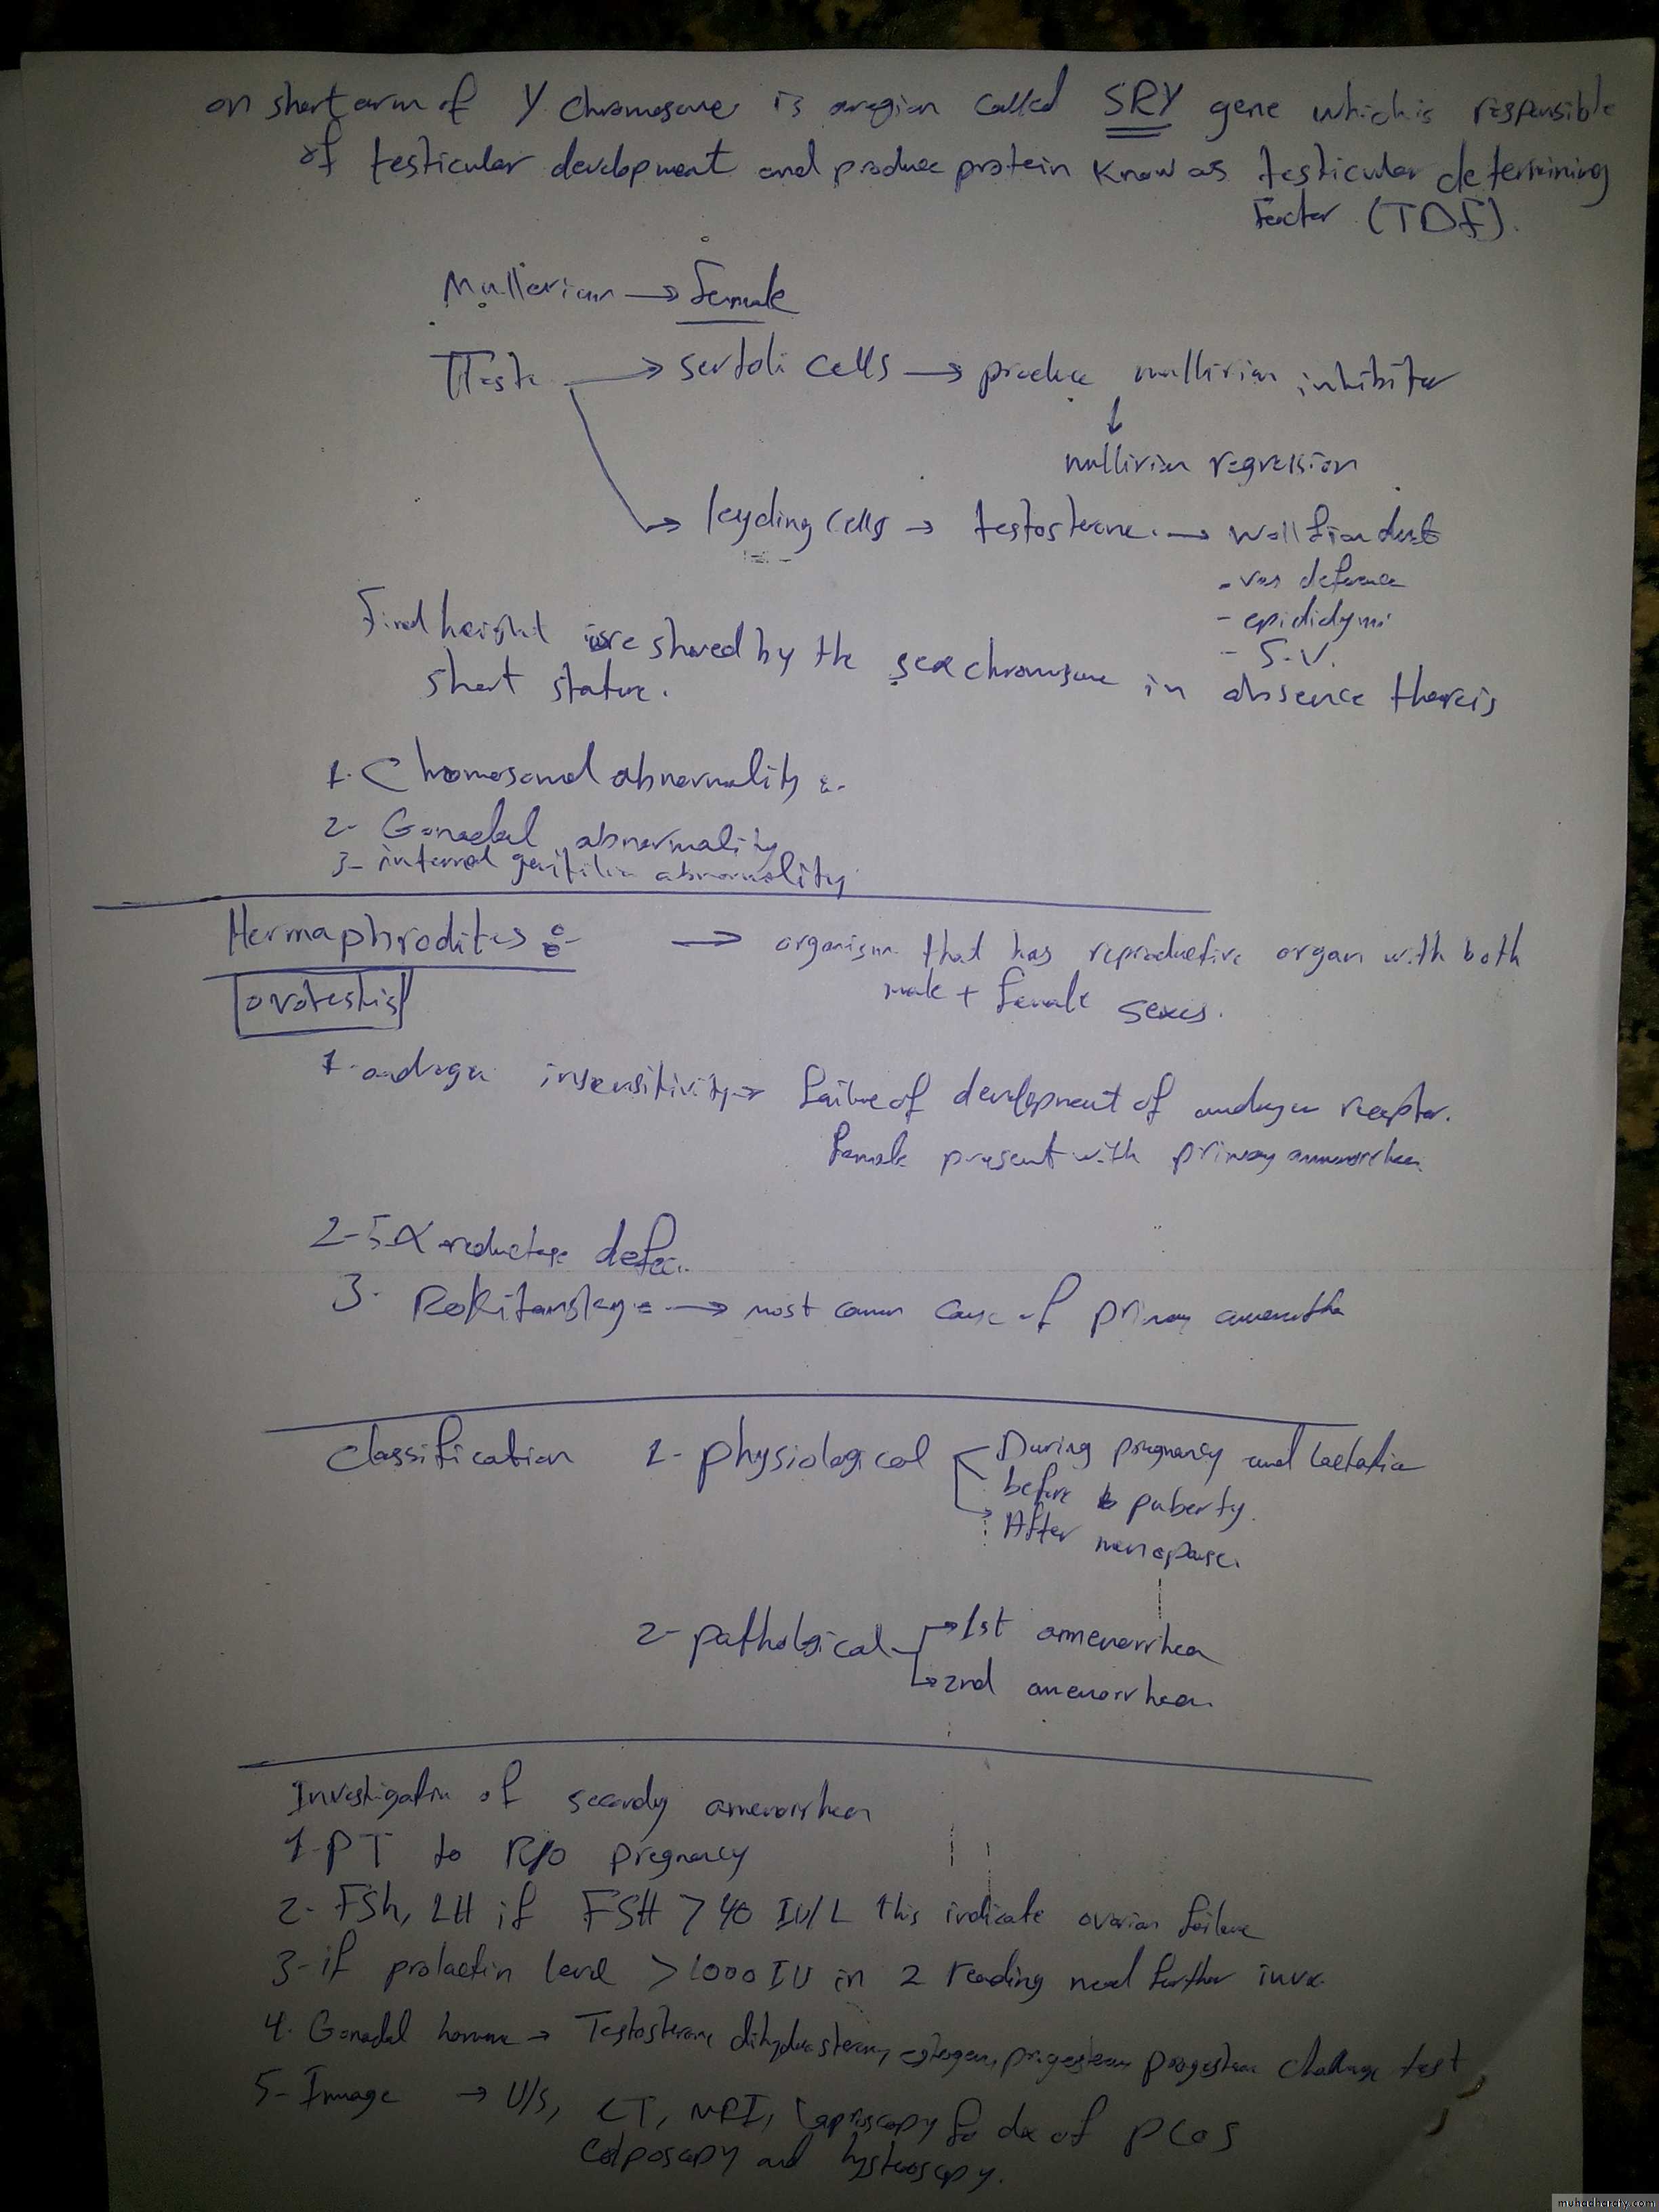 on short arm of Y chromosome is aregion called SRY gene which is responsible
of testicular development and produce protein Know as testicular determining
Factor (TDF).
Mullerian → Female
Testi → sertoli cells → produce mullirian inhibitor
↓
mullirian regression
→ leyding cells → testosterone → wolffian duct
- vas deference
- epididymi
- S.V.
Final height is shared by the sex chromosome in absence thereis
short stature.
1. Chromosomal abnormality :-
2- Gonadal abnormality
3- internal genitilia abnormality
Hermaphrodites :- → organism that has reproductive organ with both
male + female sexes.
ovotestis
1- androgen insensitivity → failure of development of androgen receptor.
female present with primary ammenorrhea
2- 5α reductase defec
3. Rokitansky → most common cause of primary
Classification 1- physiological During pregnancy and lactation
before puberty.
After menopause.
2- pathological → 1st ammenorrhea
→ 2nd amenorrhea
Investigation of secondry amenorrhea
1- PT to R/O pregnancy
2- FSh, LH if FSH > 40 IU/L this indicate ovarian failure
3- if prolactin level > 1000 IU in 2 reading need further invx.
4. Gonadal hormone → Testosterone estrogen, progesterone progesterone challenge test
5- Image → U/S, CT, MRI, laproscopy for dx of PCOS
colposcopy and hysteroscopy.
muhadharaty.com